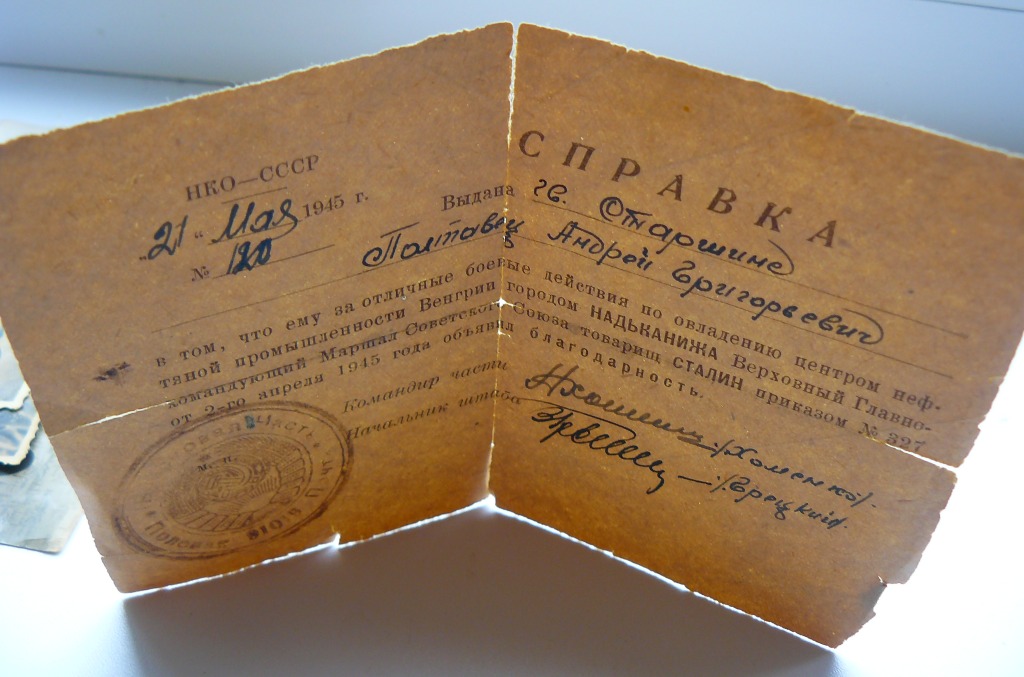 НКО—СССР
СПРАВКА
„21“ Мая 1945 г.
№ 120
Выдана гв. Старшине
Полтавец Андрей Григорьевич
в том, что ему за отличные боевые действия по овладению центром неф-
тяной промышленности Венгрии городом НАДЬКАНИЖА Верховный Главно-
командующий Маршал Советского Союза товарищ СТАЛИН приказом № 327
от 2-го апреля 1945 года объявил благодарность.
Командир части /Хоменко/.
Начальник штаба /Грецкий/.
Полевая почта